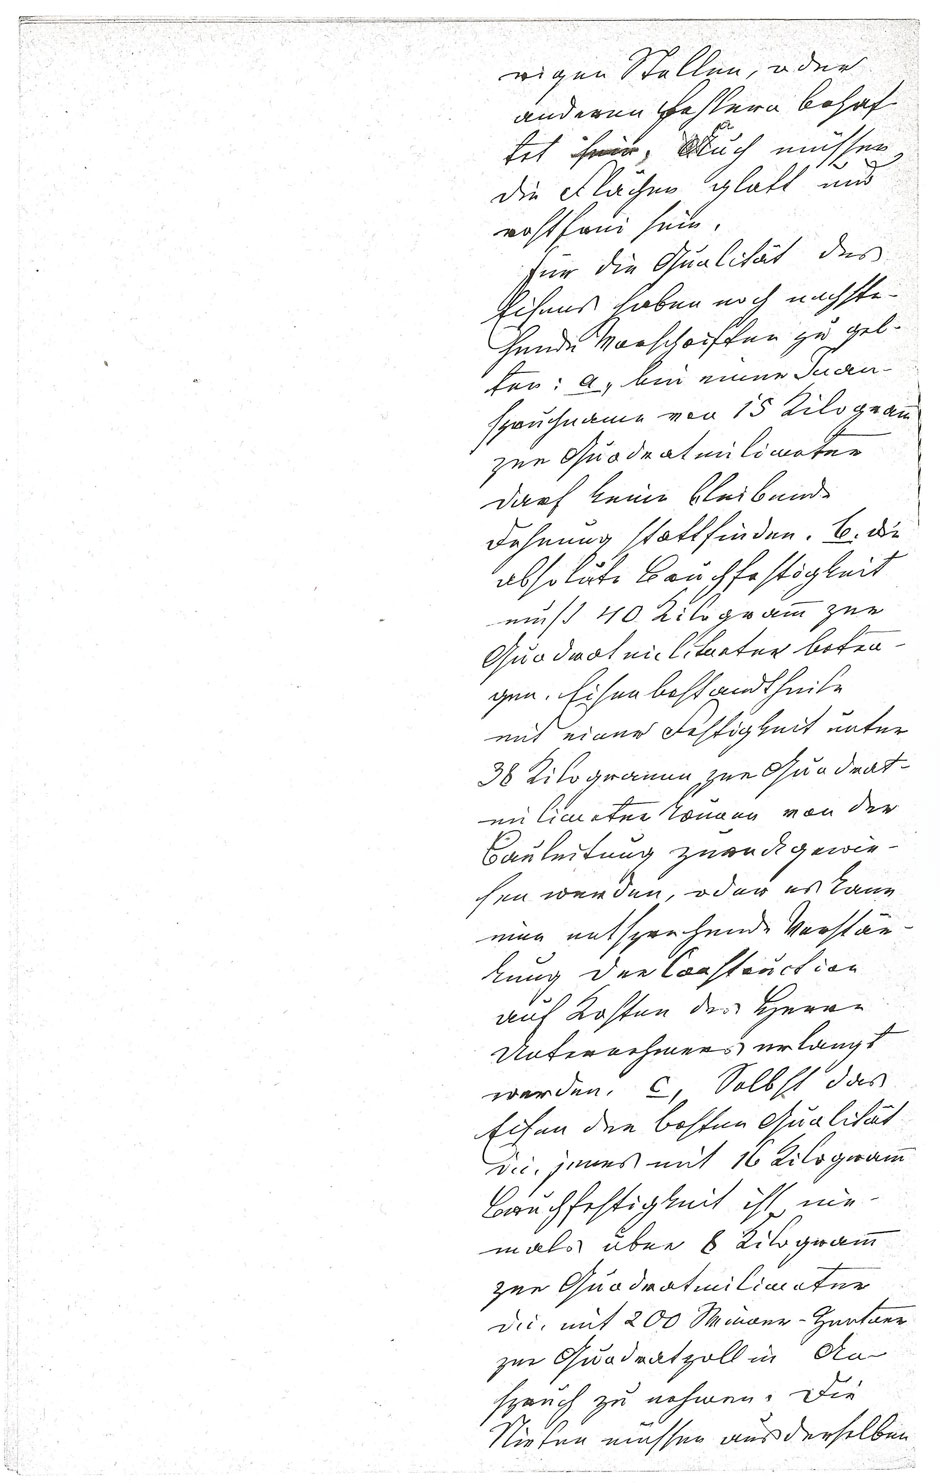 rigen Stellen, oder
anderen Fehlern behaf
tet sein, Auch müssen
die Flächen glatt und
rostfrei sein.
Für die Qualität des
Eisens haben noch nachste-
hende Vorschriften zu gel-
ten: a, bei einer Inan-
spruchname von 15 Kilogram̅
per Quadratmilimeter
darf keine bleibende
Dehnung stattfinden. b. die
absolute Bruchfestigkeit
muß 40 Kilogram̅ per
Quadratmilimeter betra-
gen. Eisenbestandtheile
mit einer Festigkeit unter
38 Kilogramm per Quadrat-
milimeter können von der
Bauleitung zurückgewie-
sen werden, oder es kann
eine entsprehende Verstär-
kung der Construction
auf Kosten des Herrn
Unternehmers verlangt
werden. c, Selbst das
Eisen der besten Qualität
d.i. jenes mit 16 Kilogram̅
Bruchfestigkeit ist nie-
mals über 8 Kilogram̅
per Quadratmilimeter
d.i. mit 200 Wiener-Zentner
per Quadratzoll in An-
spruch zu nehmen. Die
Nieten müssen aus derselben